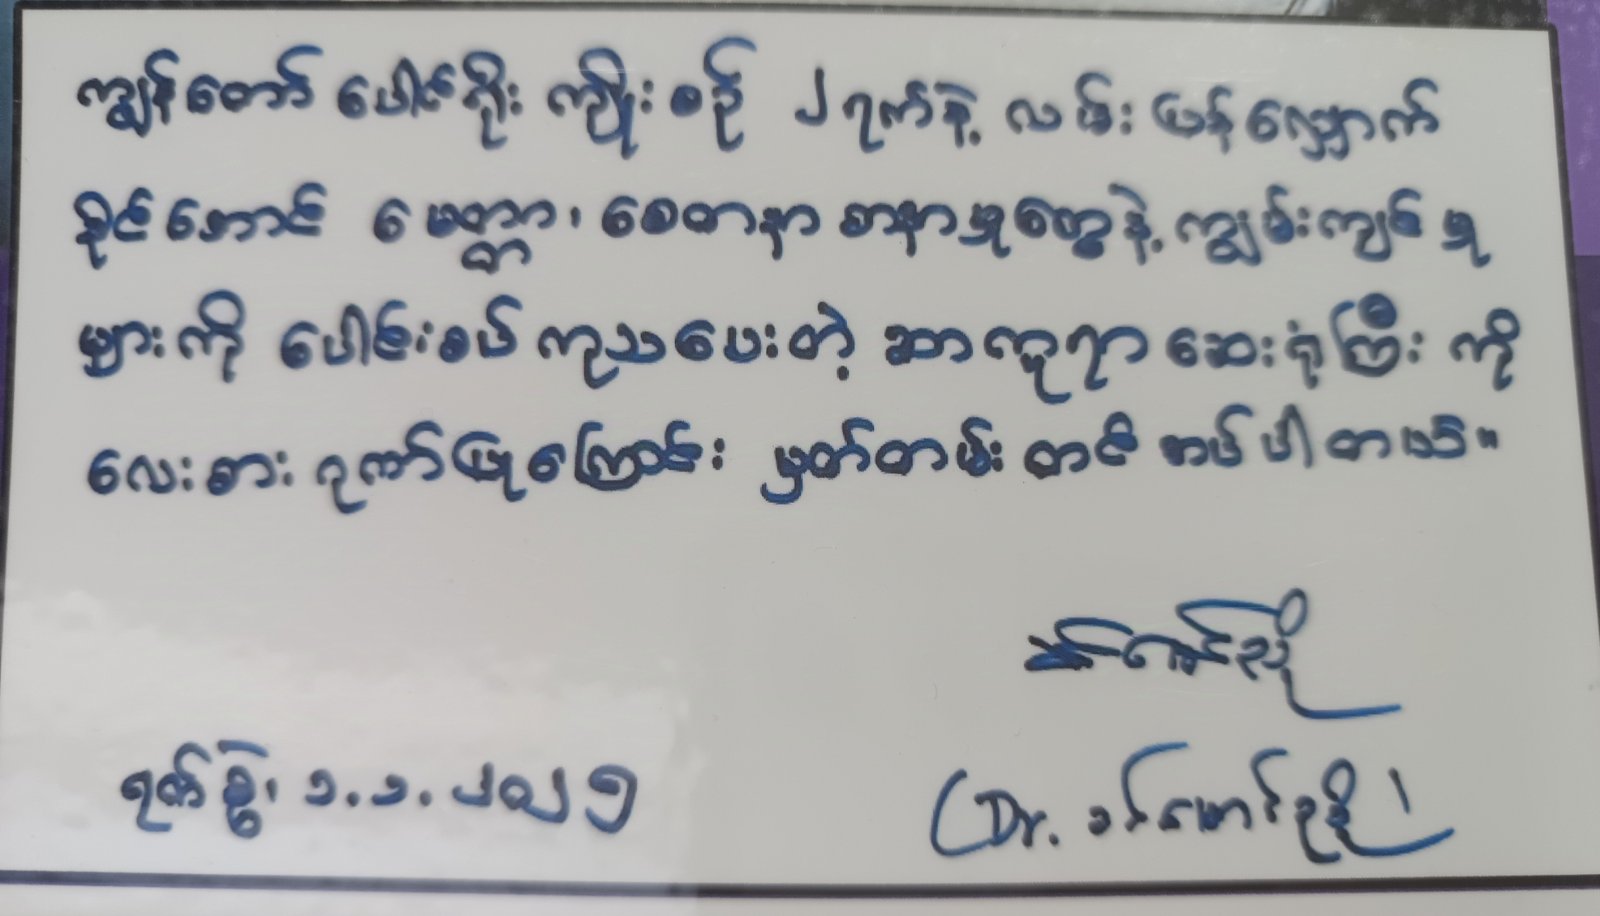 ကျွန်တော် ပေါင်ရိုး ကျိုးစဉ် ၂ ရက်နဲ့ လမ်း ပြန်လျှောက်
နိုင်အောင် မေတ္တာ၊ စေတနာ အနာမှုတွေနဲ့ ကျွမ်းကျင် မှု
များကို ပေါင်းစပ် ကုသပေးတဲ့ အာကူရာ ဆေးရုံကြီး ကို
လေးစား ဂုဏ်ပြုကြောင်း မှတ်တမ်း တင် အပ်ပါတယ်။
ရက်စွဲ၊ ၁.၁.၂၀၂၅
(Dr. ခင်မောင်ညို)